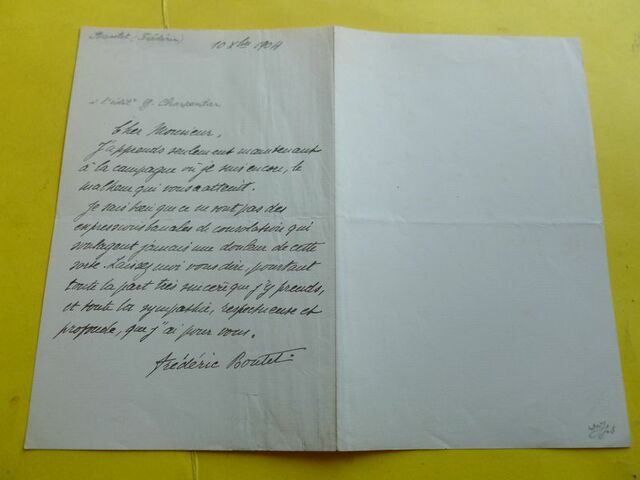 Boutet (Frédéric)
10 Xbre 1904
à l'édit^r G. Charpentier
Cher Monsieur,
J'apprends seulement maintenant
à la campagne où je suis encore, le
malheur qui vous a atteint.
Je sais bien que ce ne sont pas des
expressions banales de consolation qui
soulagent jamais une douleur de cette
sorte. Laissez moi vous dire, pourtant
toute la part très sincère que j'y prends,
et toute la sympathie, respectueuse et
profonde, que j'ai pour vous.
Frédéric Boutet